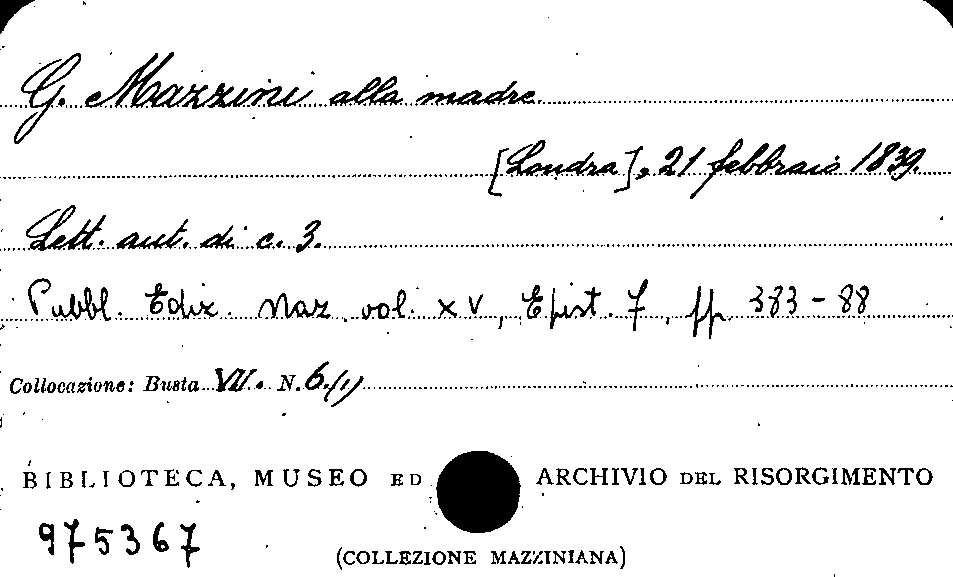 G. Mazzini alla madre
[Londra], 21 febbraio 1839.
Lett. aut. di c. 3.
Pubbl. Ediz. Naz. vol. XV, Epist. 7, pp. 383-88
Collocazione: Busta VII. N. 6/1)
BIBLIOTECA, MUSEO ED ARCHIVIO DEL RISORGIMENTO
975367
(COLLEZIONE MAZZINIANA)